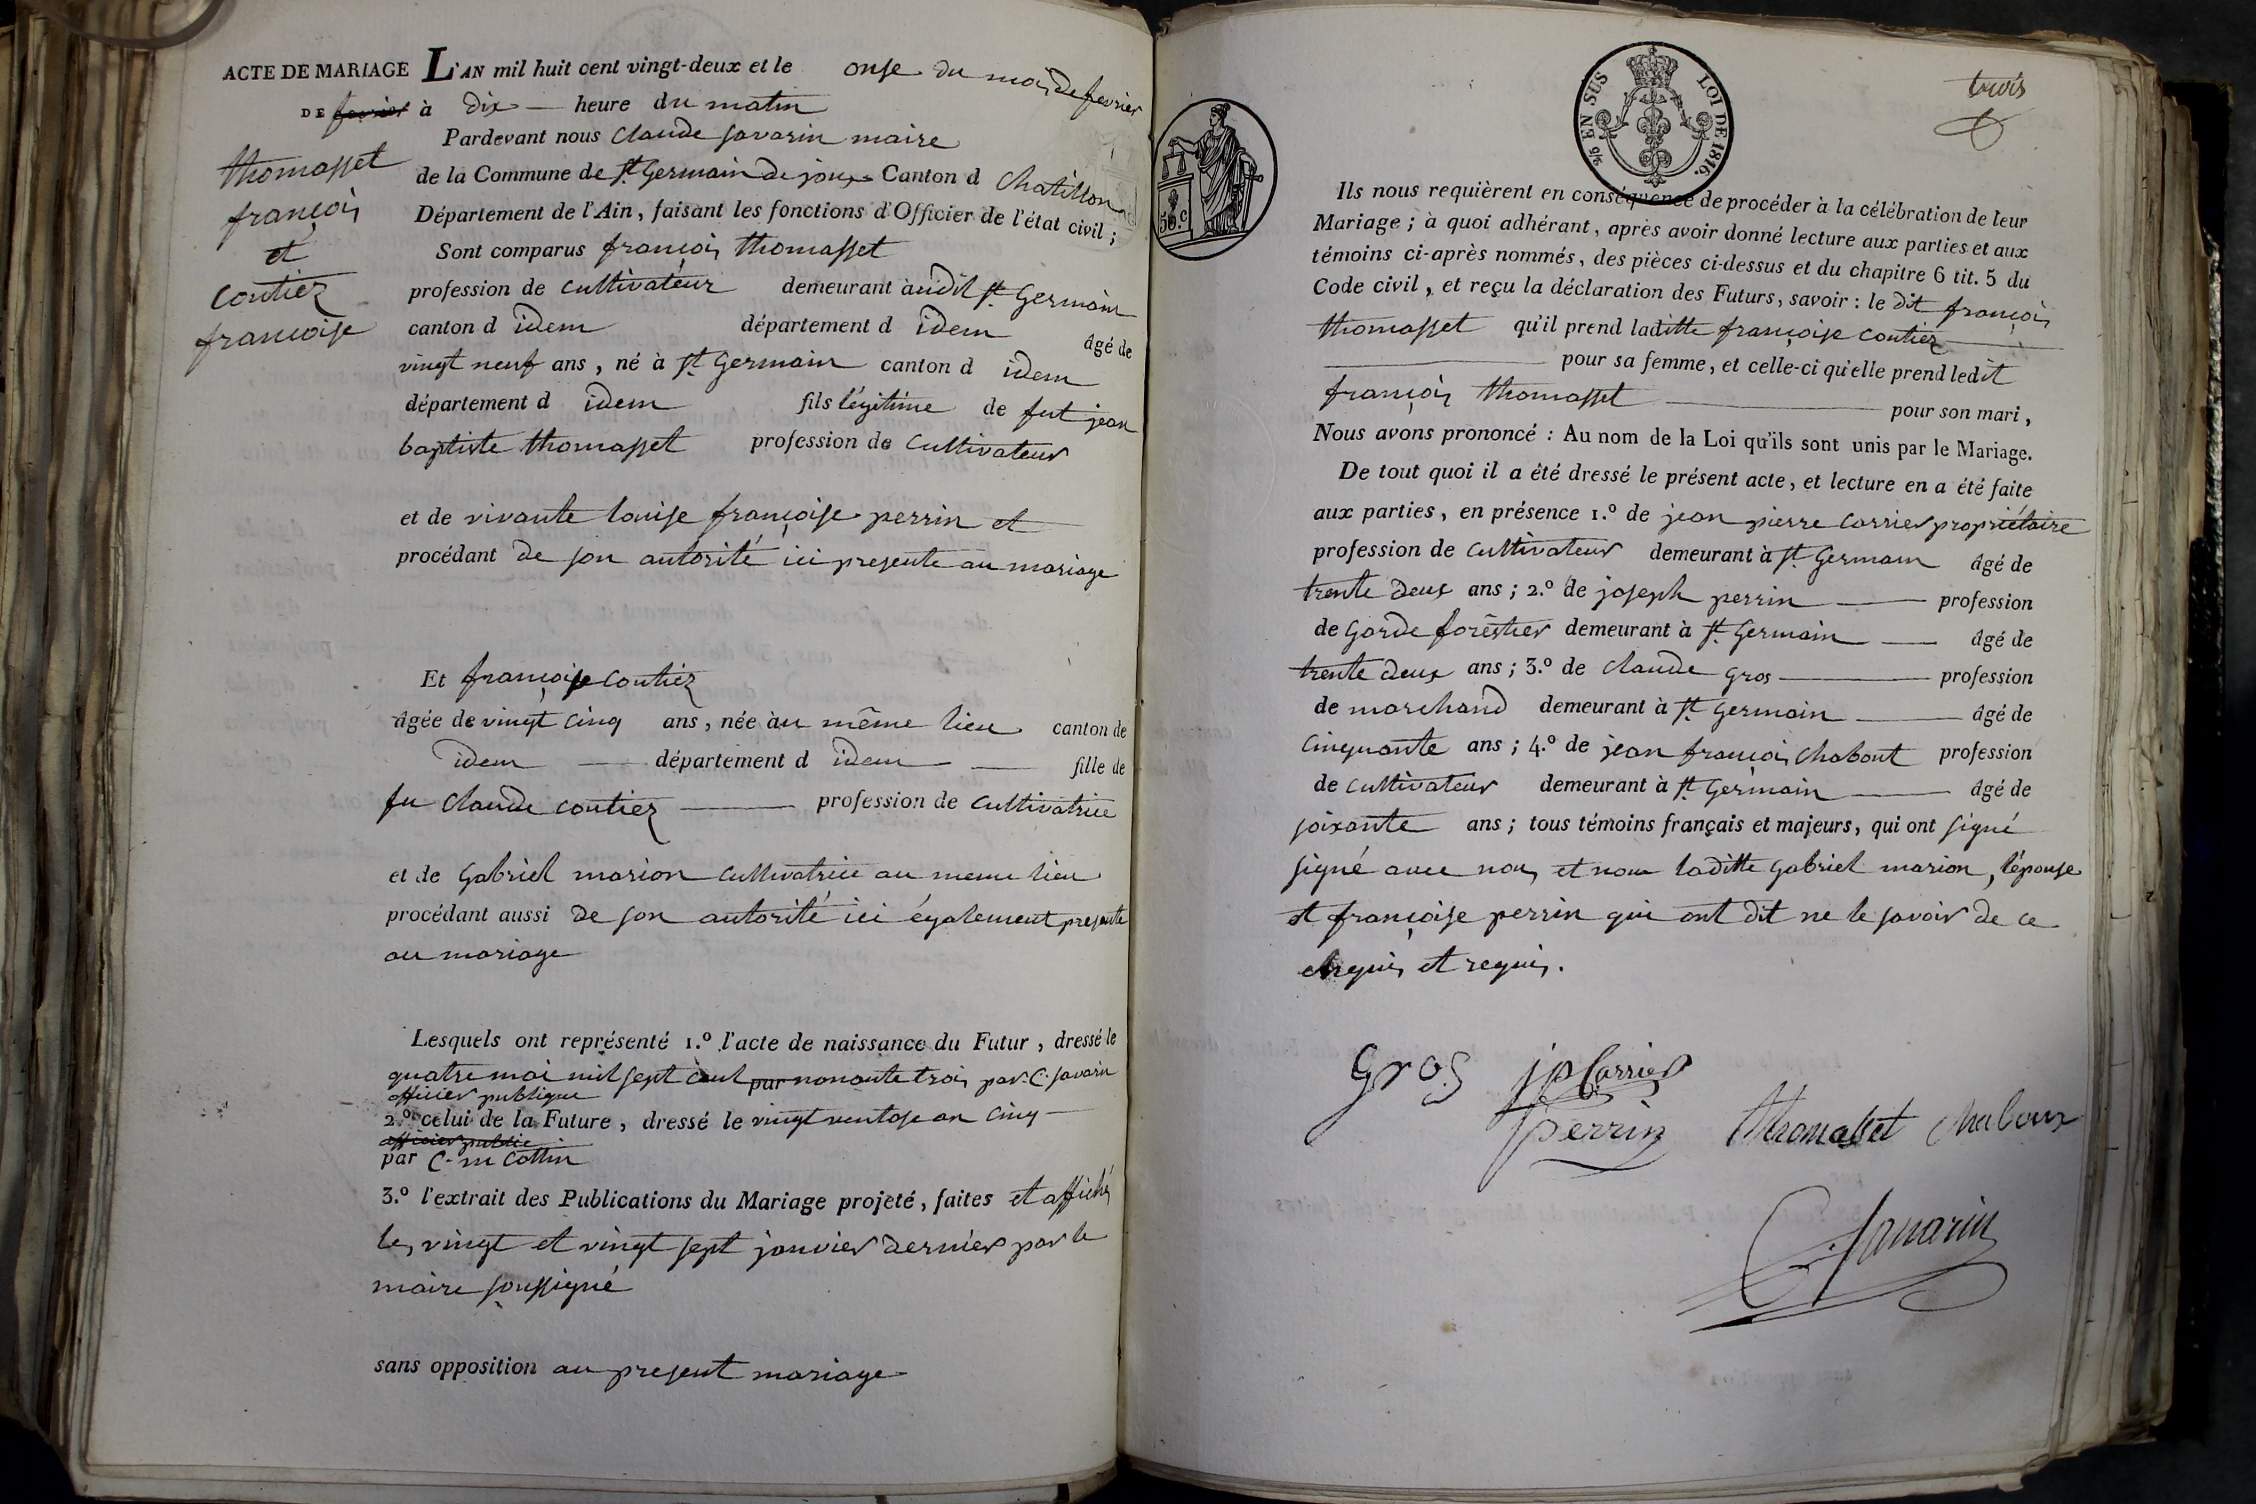 ACTE DE MARIAGE L'AN mil huit cent vingt-deux et le onse du mois de fevrier
DE fevrier à dix — heure du matin
Pardevant nous Claude savarin maire
thomasset
françois
et
coutiez
françoise
de la Commune de St. Germain de joux Canton d Chatillon
Département de l'Ain, faisant les fonctions d'Officier de l'état civil;
Sont comparus françois thomasset
profession de cultivateur demeurant àudit St. Germain
canton d idem département d idem âgé de
vingt neuf ans, né à St. Germain canton d idem
département d idem fils légitime de fut jean
baptiste thomasset profession de cultivateur
et de vivante louise françoise perrin et
procédant de son autorité ici presente au mariage
Et françoise coutiez
âgée de vingt cinq ans, née àu même lieu canton de
idem — département d idem — fille de
fu claude coutiez — profession de cultivatrice
et de Gabriel marion cultivatrice au meme lieu
procédant aussi de son autorité ici également presente
au mariage
Lesquels ont représenté 1.º l'acte de naissance du Futur, dressé le
quatre mai mil sept cent par nonante trois par C. savarin
officier publique
2.º celui de la Future, dressé le vingt ventose an cinq —
officier public
par C. m Cottin
3.º l'extrait des Publications du Mariage projeté, faites et affiché
les vingt et vingt sept janvier dernier par le
maire soussigné
sans opposition au present mariage
5/6 EN SUS LOI DE 1816.
trois
50. c
Ils nous requièrent en conséquence de procéder à la célébration de leur
Mariage; à quoi adhérant, après avoir donné lecture aux parties et aux
témoins ci-après nommés, des pièces ci-dessus et du chapitre 6 tit. 5 du
Code civil, et reçu la déclaration des Futurs, savoir: le dit françois
thomasset qu'il prend laditte françoise coutiez —
— pour sa femme, et celle-ci qu'elle prend ledit
françois thomasset — pour son mari,
Nous avons prononcé: Au nom de la Loi qu'ils sont unis par le Mariage.
De tout quoi il a été dressé le présent acte, et lecture en a été faite
aux parties, en présence 1.º de jean pierre carrier propriétaire
profession de cultivateur demeurant à St. Germain âgé de
trente deux ans; 2.º de joseph perrin — profession
de Garde forêstier demeurant à St. Germain — âgé de
trente deux ans; 3.º de claude gros — profession
de marchand demeurant à St. Germain — âgé de
cinquante ans; 4.º de jean françois chabout profession
de cultivateur demeurant à St. Germain — âgé de
soixante ans; tous témoins français et majeurs, qui ont signé
signé avec nous et non laditte Gabriel marion, l'épouse
et françoise perrin qui ont dit ne le savoir de ce
enquis et requis.
Gros jp Carrier
perrin thomasset chaboux
C. Savarin